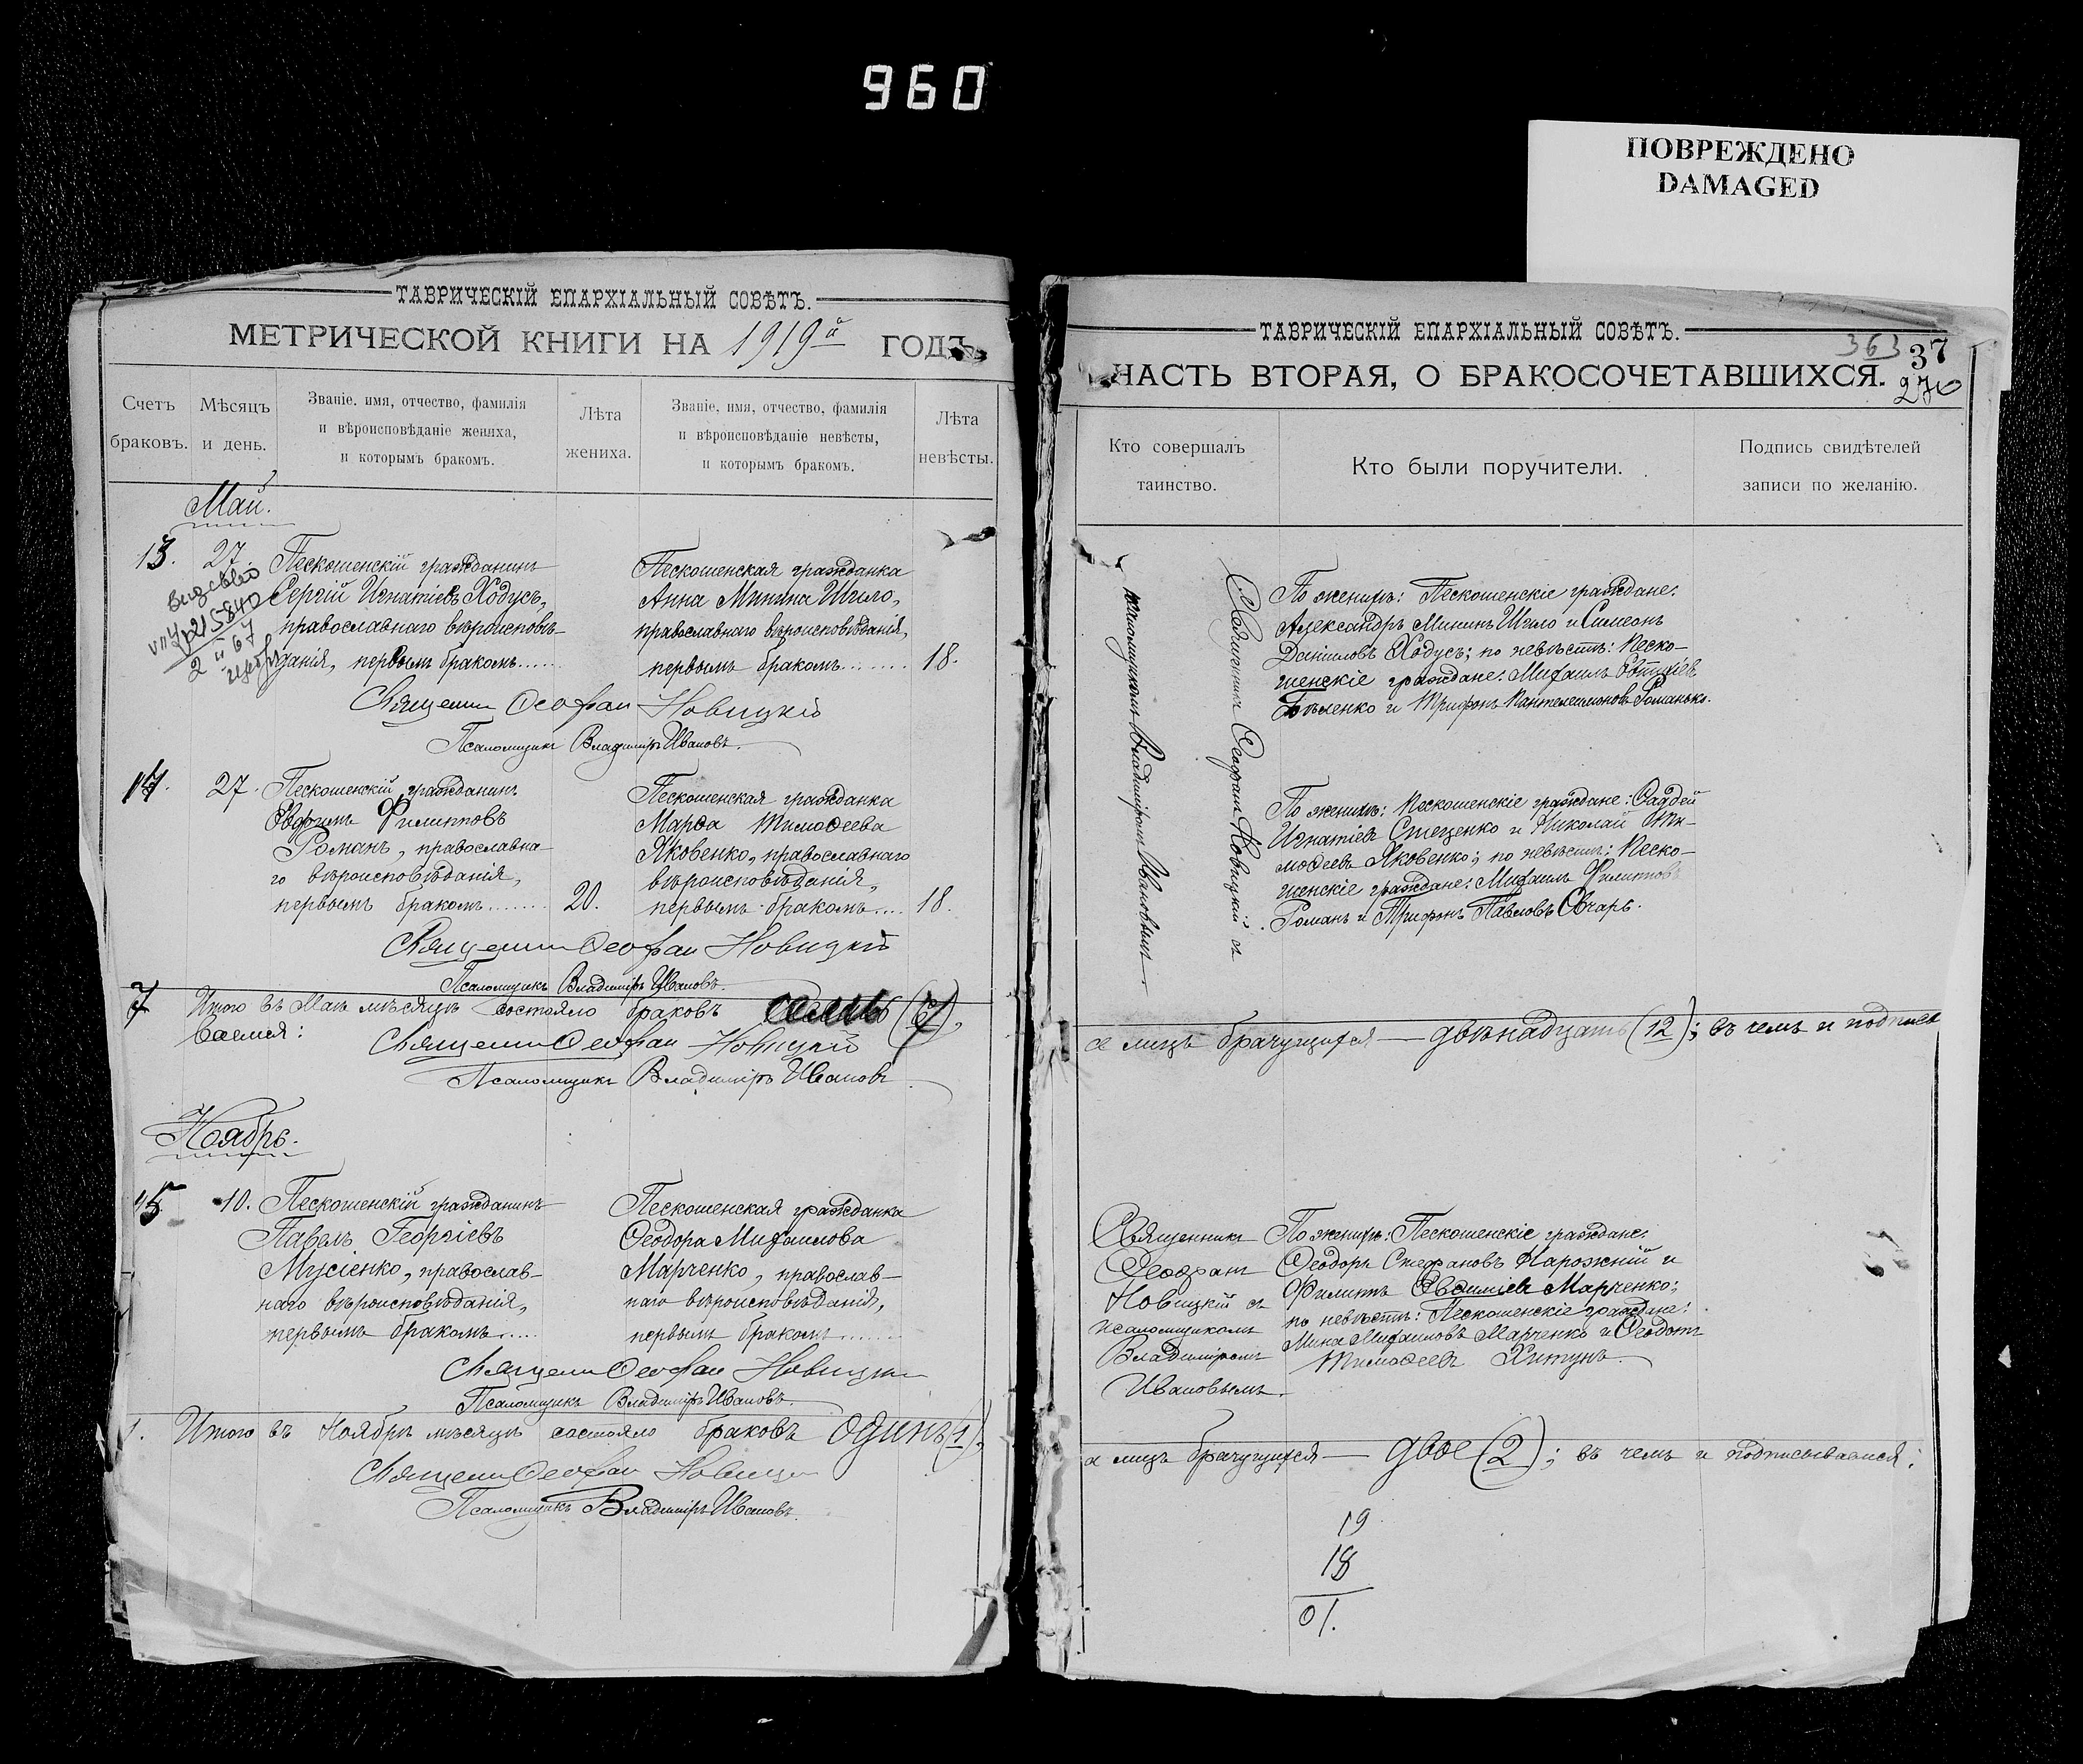 960
ПОВРЕЖДЕНО
DAMAGED
ТАВРИЧЕСКІЙ ЕПАРХІАЛЬНЫЙ СОВѢТЪ.
МЕТРИЧЕСКОЙ КНИГИ НА 1919й ГОДЪ
Счетъ браковъ.
Мѣсяцъ и день.
Званіе, имя, отчество, фамилія
и вѣроисповѣданіе жениха,
и которымъ бракомъ.
Лѣта жениха.
Званіе, имя, отчество, фамилія
и вѣроисповѣданіе невѣсты,
и которымъ бракомъ.
Лѣта невѣсты.
Май.
13. 27.
Пескошенскій гражданинъ
Сергій Игнатіевъ Ходусъ,
православнаго вѣроисповѣ-
данія, первымъ бракомъ......
Пескошенская гражданка
Анна Минина Шило,
православнаго вѣроисповѣданія,
первымъ бракомъ........ 18.
Священникъ Ѳеофан Новицкій
Псаломщикъ Владиміръ Ивановъ.
14. 27.
Пескошенскій гражданинъ
Евфимъ Филипповъ
Романъ, православна-
го вѣроисповѣданія,
первымъ бракомъ....... 20.
Пескошенская гражданка
Марѳа Тимоѳеева
Яковенко, православнаго
вѣроисповѣданія,
первымъ бракомъ.... 18.
Священникъ Ѳеофан Новицкій
Псаломщикъ Владиміръ Ивановъ.
7 Итого въ Маѣ мѣсяцѣ состояло браковъ
ваемся:
Священникъ Ѳеофан Новицкій
Псаломщикъ Владиміръ Ивановъ
Ноябрь.
15 10.
Пескошенскій гражданинъ
Павелъ Георгіевъ
Мусіенко, православ-
наго вѣроисповѣданія,
первымъ бракомъ.....
Пескошенская гражданка
Ѳеодора Михаилова
Марченко, православ-
наго вѣроисповѣданія,
первымъ бракомъ.......
Священникъ Ѳеофан Новицкій
Псаломщикъ Владиміръ Ивановъ.
1. Итого въ Ноябрѣ мѣсяцѣ состояло браковъ одинъ (1),
Священникъ Ѳеофан Новицкій
Псаломщикъ Владиміръ Ивановъ.
ТАВРИЧЕСКІЙ ЕПАРХІАЛЬНЫЙ СОВѢТЪ.
363 37
ЧАСТЬ ВТОРАЯ, О БРАКОСОЧЕТАВШИХСЯ.
270
Кто совершалъ таинство.
Кто были поручители.
Подпись свидѣтелей
записи по желанію.
Священникъ Ѳеофанъ Новицкій съ
псаломщикомъ Владиміромъ Ивановымъ
По женихѣ: Пескошенскіе граждане:
Александръ Мининъ Шило и Симеонъ
Даніиловъ Ходусъ; по невѣстѣ: Песко-
шенскіе граждане: Михаилъ
и Трифонъ Пантелеимоновъ Романько.
По женихѣ: Пескошенскіе граждане: Ѳаддей
Игнатіевъ Стеценко и Николай Ти-
моѳеевъ Яковенко; по невѣстѣ: Песко-
шенскіе граждане: Михаилъ Филипповъ
Романъ и Трифонъ Павловъ Овчаръ.
а лицъ брачущихся — двѣнадцать (12); въ чемъ и подписы
Священникъ
Ѳеофанъ
Новицкій съ
псаломщикомъ
Владиміромъ
Ивановымъ.
По женихѣ: Пескошенскіе граждане:
Ѳеодоръ Стефановъ Нарожній и
Филиппъ Евѳиміевъ Марченко;
по невѣстѣ: Пескошенскіе граждане:
Мина Михаиловъ Марченко и Ѳеодотъ
Тимоѳеевъ Хитунъ.
а лицъ брачущихся — двое (2); въ чемъ и подписываемся:
19
18
01.